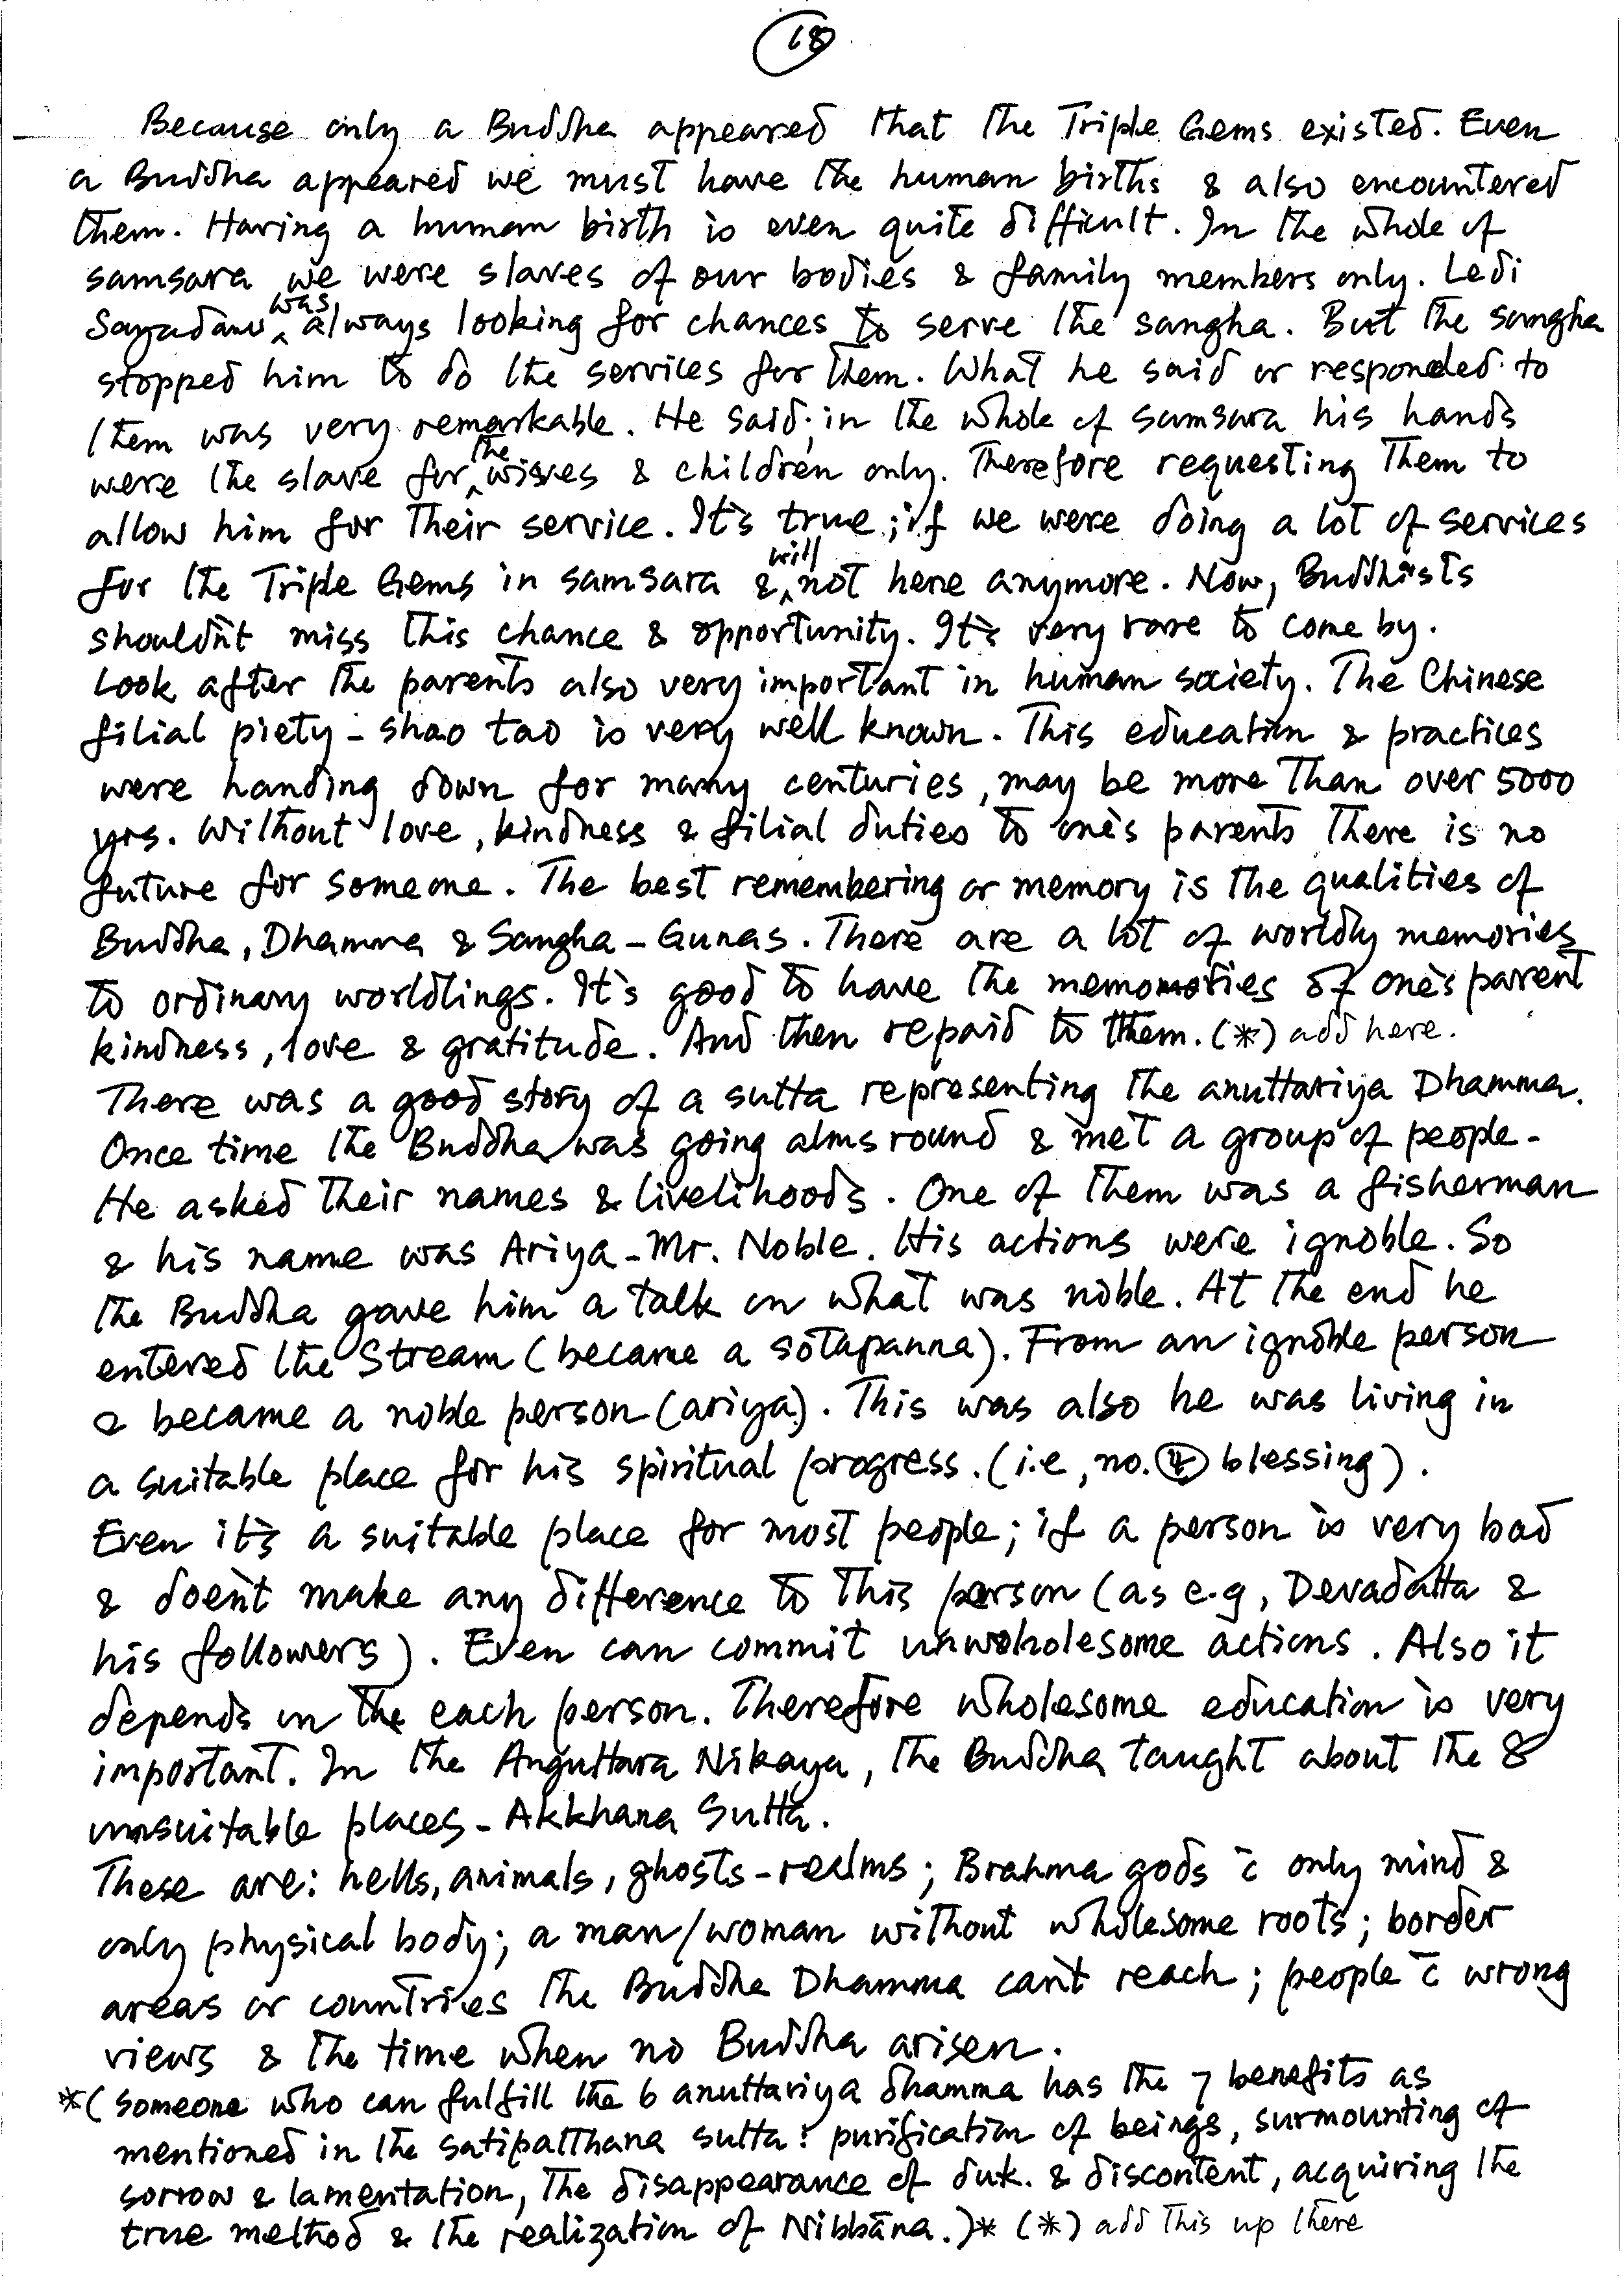 18
Because only a Buddha appeared that the Triple Gems existed. Even
a Buddha appeared we must have the human births & also encountered
them. Having a human birth is even quite difficult. In the whole of
samsara we were slaves of our bodies & family members only. Ledi
Sayadaw was always looking for chances to serve the sangha. But the sangha
stopped him to do the services for them. What he said or responded to
them was very remarkable. He said; in the whole of samsara his hands
were the slave for the wives & children only. Therefore requesting Them to
allow him for Their service. It's true; if we were doing a lot of services
for the Triple Gems in samsara & will not here anymore. Now, Buddhists
shouldn't miss this chance & opportunity. It's very rare to come by.
Look after the parents also very important in human society. The Chinese
filial piety - shao tao is very well known. This education & practices
were handing down for many centuries, may be more than over 5000
yrs. Without love, kindness & filial duties to one's parents there is no
future for someone. The best remembering or memory is the qualities of
Buddha, Dhamma & Sangha - Gunas. There are a lot of worldly memories
to ordinary worldlings. It's good to have the memomories of one's parent
kindness, love & gratitude. And then repaid to them. (*) add here.
There was a good story of a sutta representing the anuttariya Dhamma.
Once time the Buddha was going alms round & met a group of people.
He asked their names & livelihoods. One of them was a fisherman
& his name was Ariya - Mr. Noble. His actions were ignoble. So
the Buddha gave him a talk on what was noble. At the end he
entered the Stream (became a sotapanna). From an ignoble person
& became a noble person (ariya). This was also he was living in
a suitable place for his spiritual progress. (i.e, no. 4 blessing).
Even it's a suitable place for most people; if a person is very bad
& doen't make any difference to this person (as e.g, Devadatta &
his followers). Even can commit unwholesome actions. Also it
depends on the each person. Therefore wholesome education is very
important. In the Anguttara Nikaya, the Buddha taught about the 8
unsuitable places - Akkhana Sutta.
These are: hells, animals, ghosts - realms; Brahma gods c̄ only mind &
only physical body; a man/woman without wholesome roots; border
areas or countries the Buddha Dhamma can't reach; people c̄ wrong
views & the time when no Buddha arisen.
*( someone who can fulfill the 6 anuttariya dhamma has the 7 benefits as
mentioned in the satipatthana sutta: purification of beings, surmounting of
sorrow & lamentation, the disappearance of duk. & discontent, acquiring the
true method & the realization of Nibbāna.)* (*) add this up there